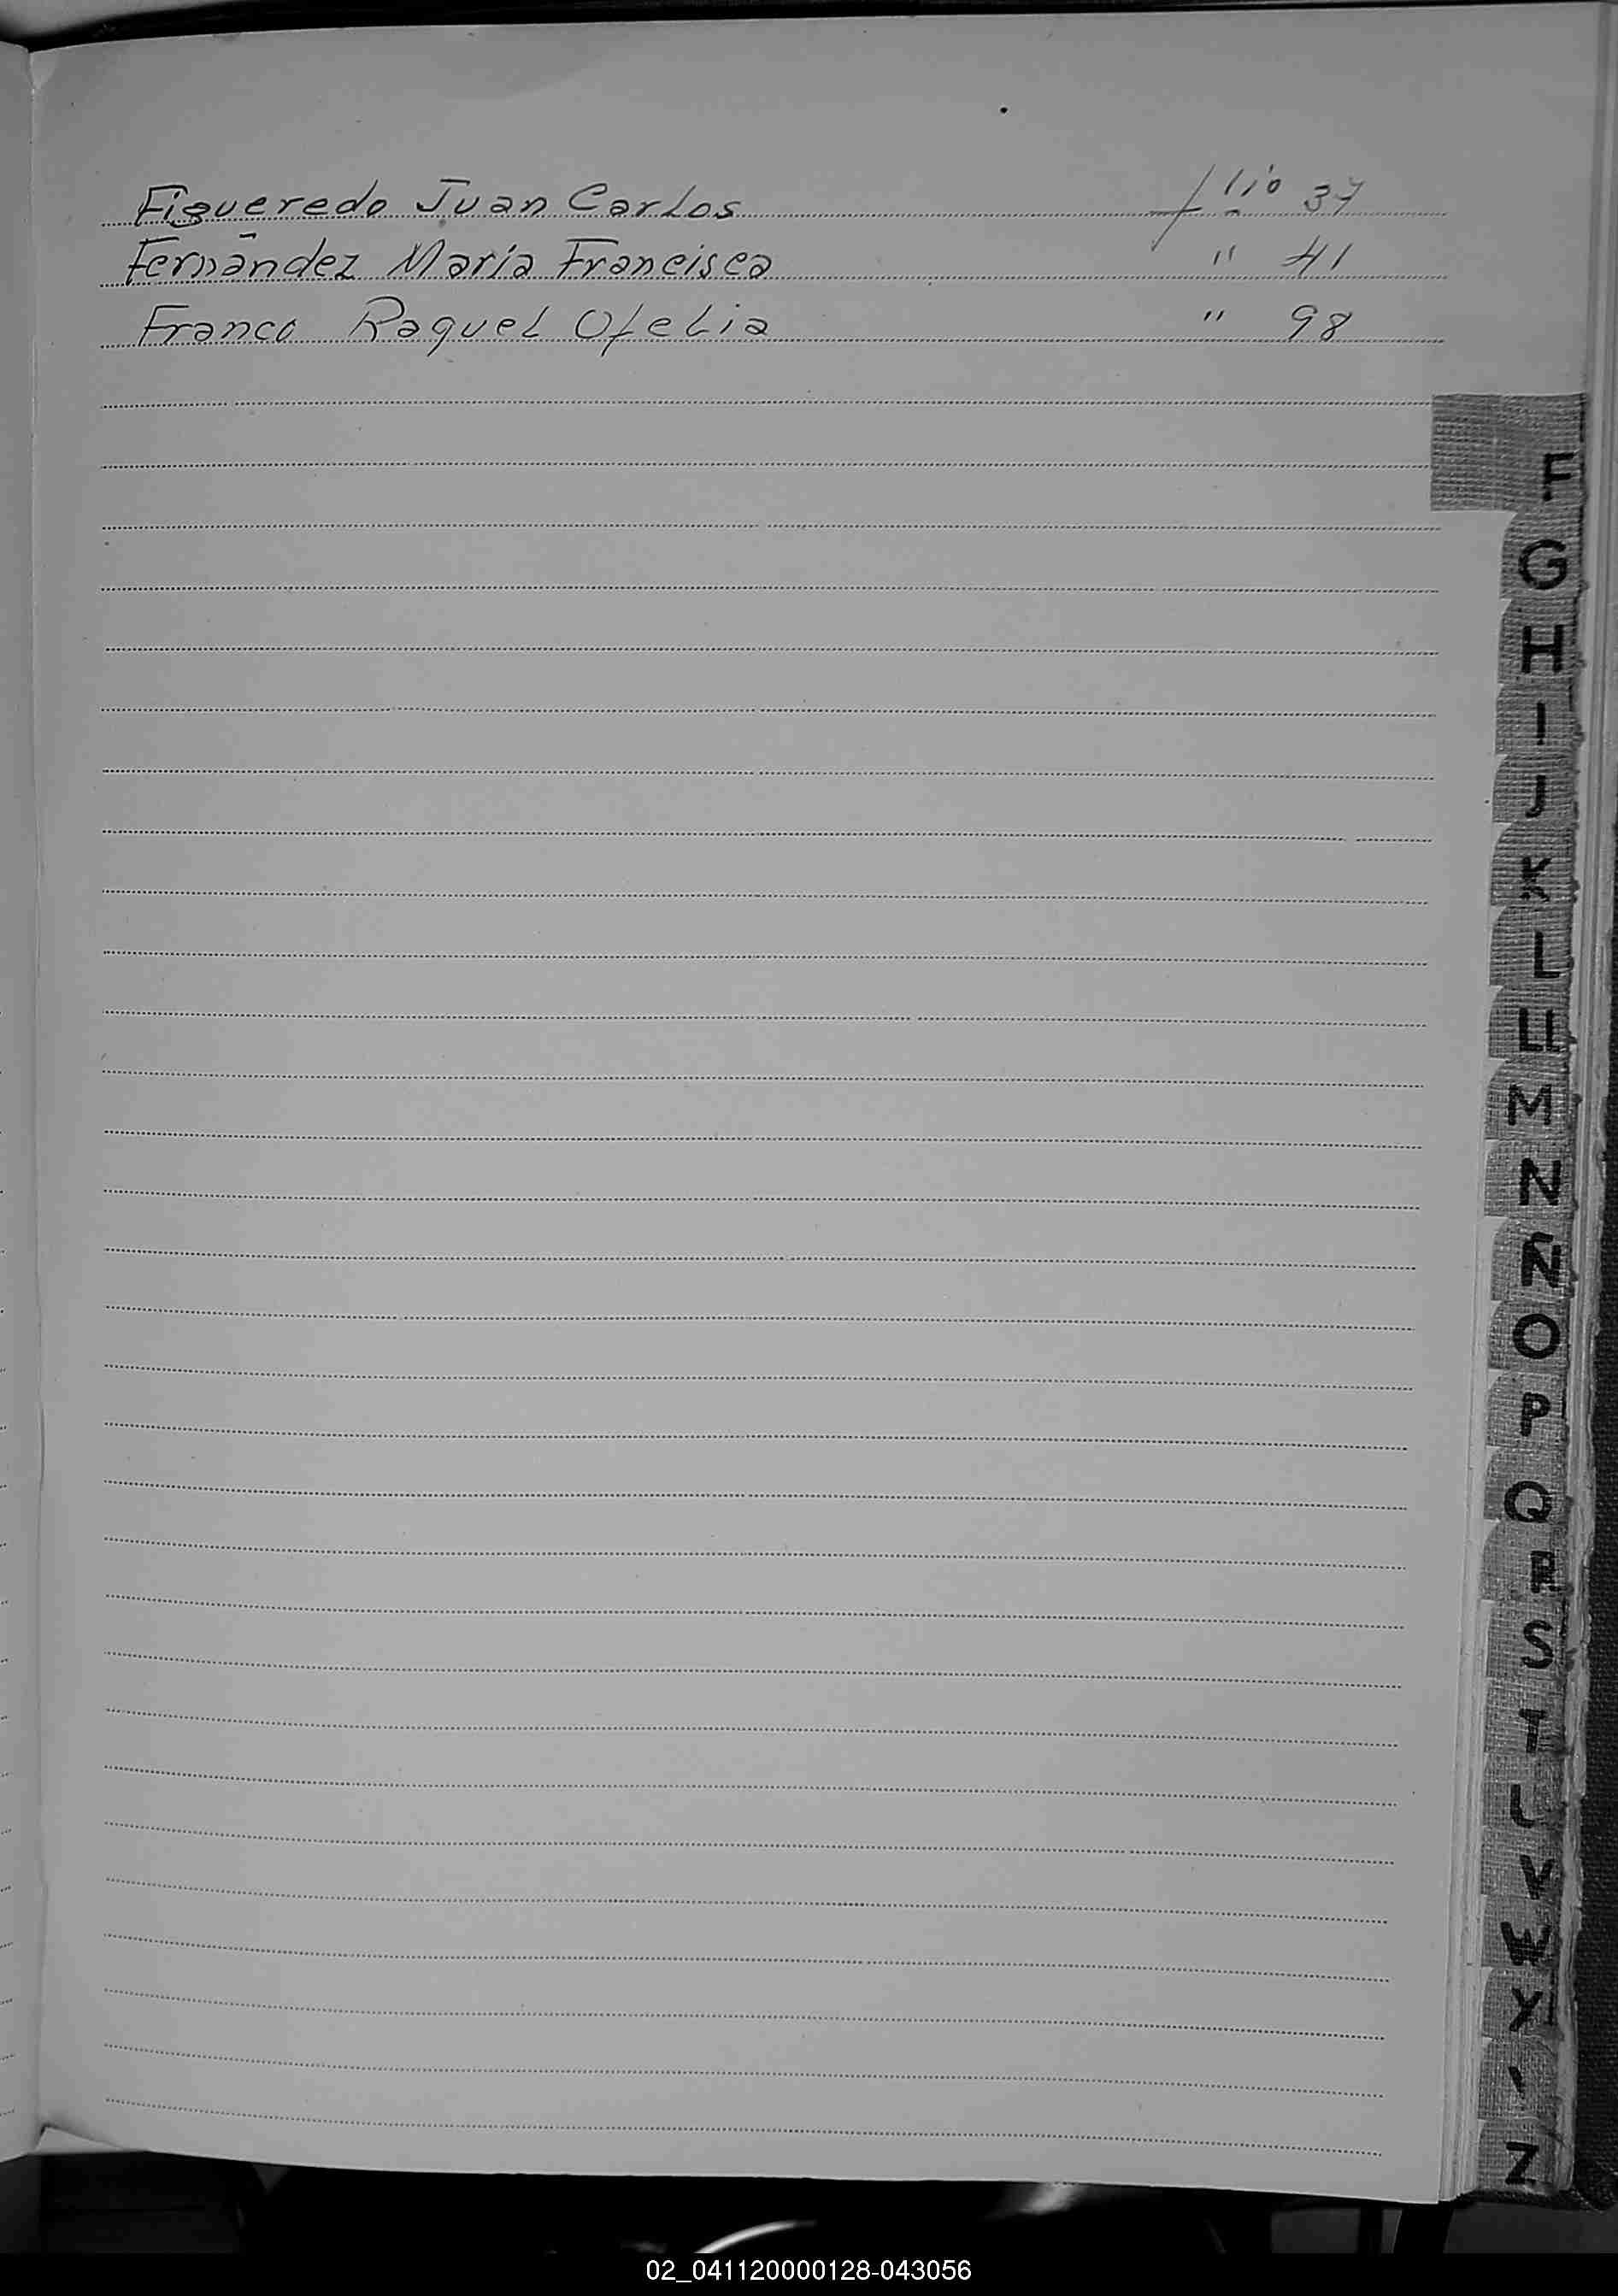 Figueredo Juan Carlos folio 37
Fernández María Francisca " 41
Franco Raquel Ofelia " 98
F
G
H
I
J
K
L
LL
M
N
Ñ
O
P
Q
R
S
T
V
W
X
Z
02_041120000128-043056